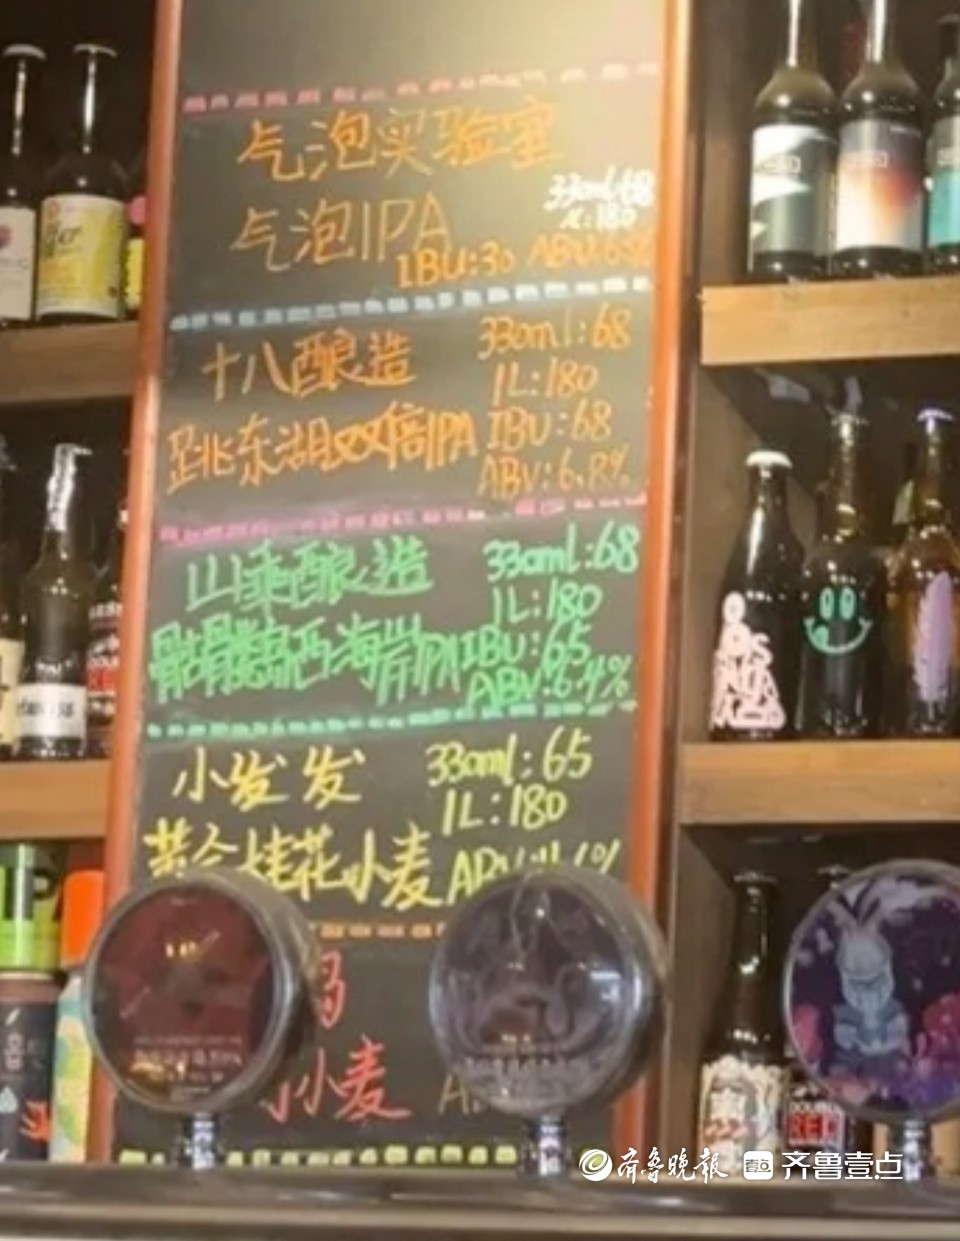 气泡实验室
气泡IPA
330ml:68
1L:180
IBU:30 ABV:6.8%
十八酿造
330ml:68
1L:180
跳东湖双倍IPA
IBU:68
ABV:6.8%
山乘酿造
330ml:68
1L:180
骷髅岛西海岸IPA
IBU:65
ABV:6.4%
小发发
330ml:65
1L:180
黄金桂花小麦
小麦
DOUBLE
RED
齐鲁晚报 壹点 齐鲁壹点